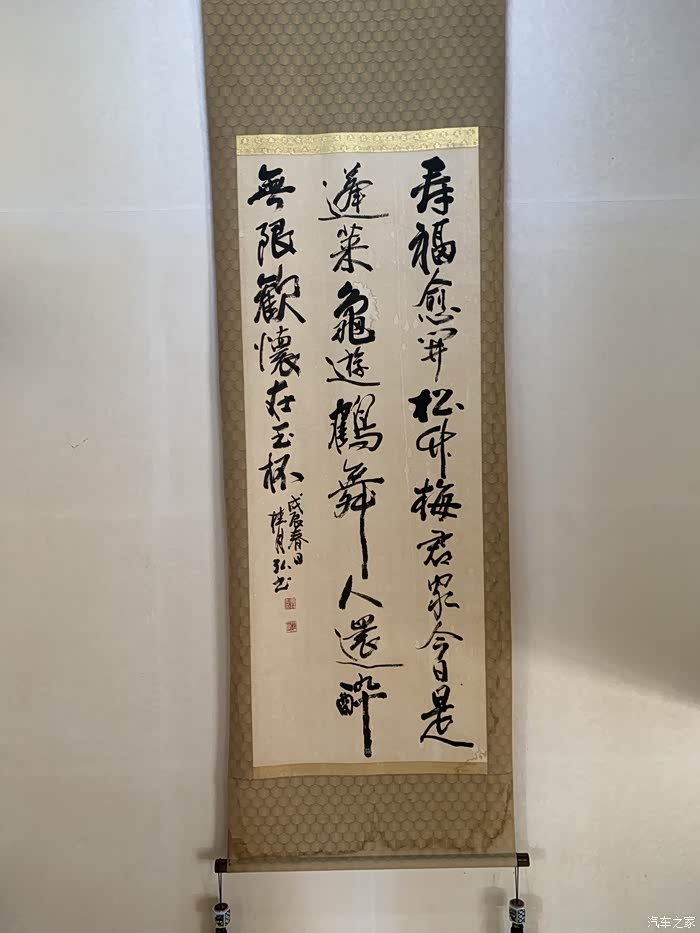 寿福愈開松竹梅君家今日是
蓬莱龜遊鶴舞人還醉
無限歡懷在玉杯
戊辰春日
桂月弘书
汽车之家